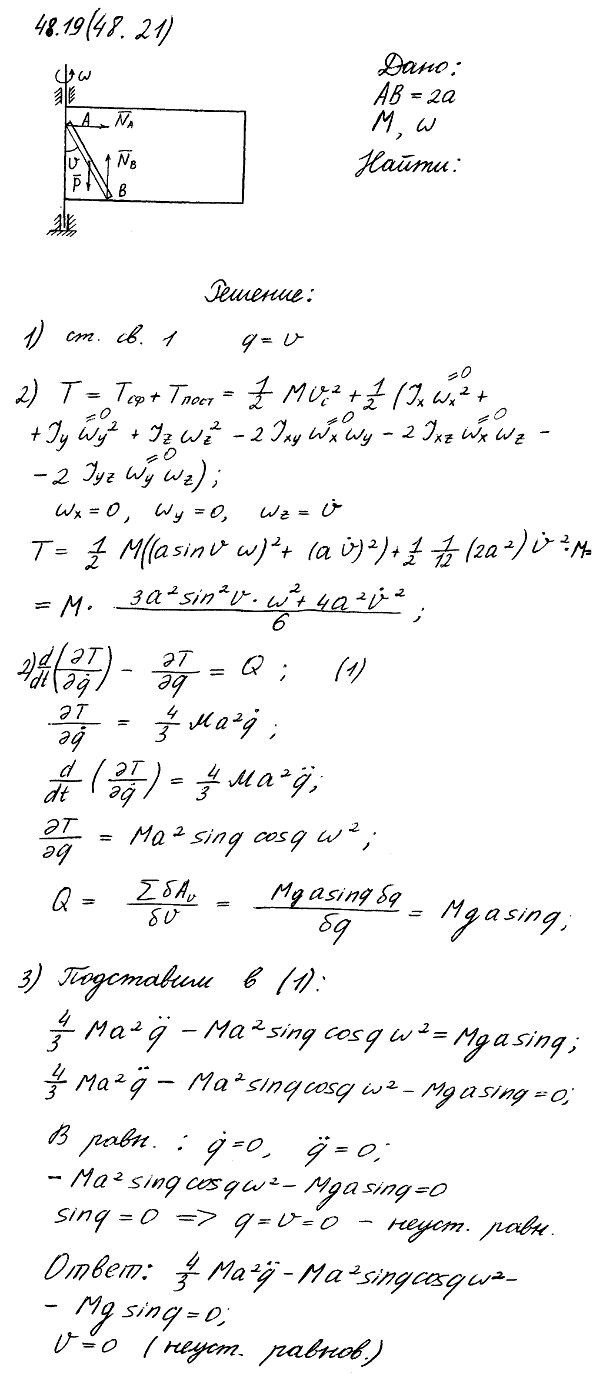 48.19(48.21)
Дано:
AB = 2a
M, ω
Найти:
ω
A N̄_A
υ N̄_B
P̄ B
Решение:
1) ст. св. 1 q = υ
2) T = T_сф + T_пост = 1/2 M υ_c² + 1/2 (J_x ω_x² (=0) +
+ J_y ω_y² (=0) + J_z ω_z² − 2 J_xy ω_x (=0) ω_y − 2 J_xz ω_x (=0) ω_z −
− 2 J_yz ω_y (=0) ω_z);
ω_x = 0, ω_y = 0, ω_z = υ̇
T = 1/2 M((a sin υ ω)² + (a υ̇)²) + 1/2 1/12 (2a²) υ̇² · M =
= M · (3a² sin² υ · ω² + 4a² υ̇²)/6 ;
2) d/dt (∂T/∂q̇) − ∂T/∂q = Q ; (1)
∂T/∂q̇ = 4/3 Ma² q̇ ;
d/dt (∂T/∂q̇) = 4/3 Ma² q̈;
∂T/∂q = Ma² sin q cos q ω² ;
Q = ΣδA_υ/δυ = Mg a sin q δq/δq = Mg a sin q;
3) Подставим в (1):
4/3 Ma² q̈ − Ma² sin q cos q ω² = Mg a sin q;
4/3 Ma² q̈ − Ma² sin q cos q ω² − Mg a sin q = 0;
В равн. : q̇ = 0, q̈ = 0;
− Ma² sin q cos q ω² − Mg a sin q = 0
sin q = 0 => q = υ = 0 − неуст. равн.
Ответ: 4/3 Ma² q̈ − Ma² sin q cos q ω² −
− Mg sin q = 0;
υ = 0 (неуст. равнов.)